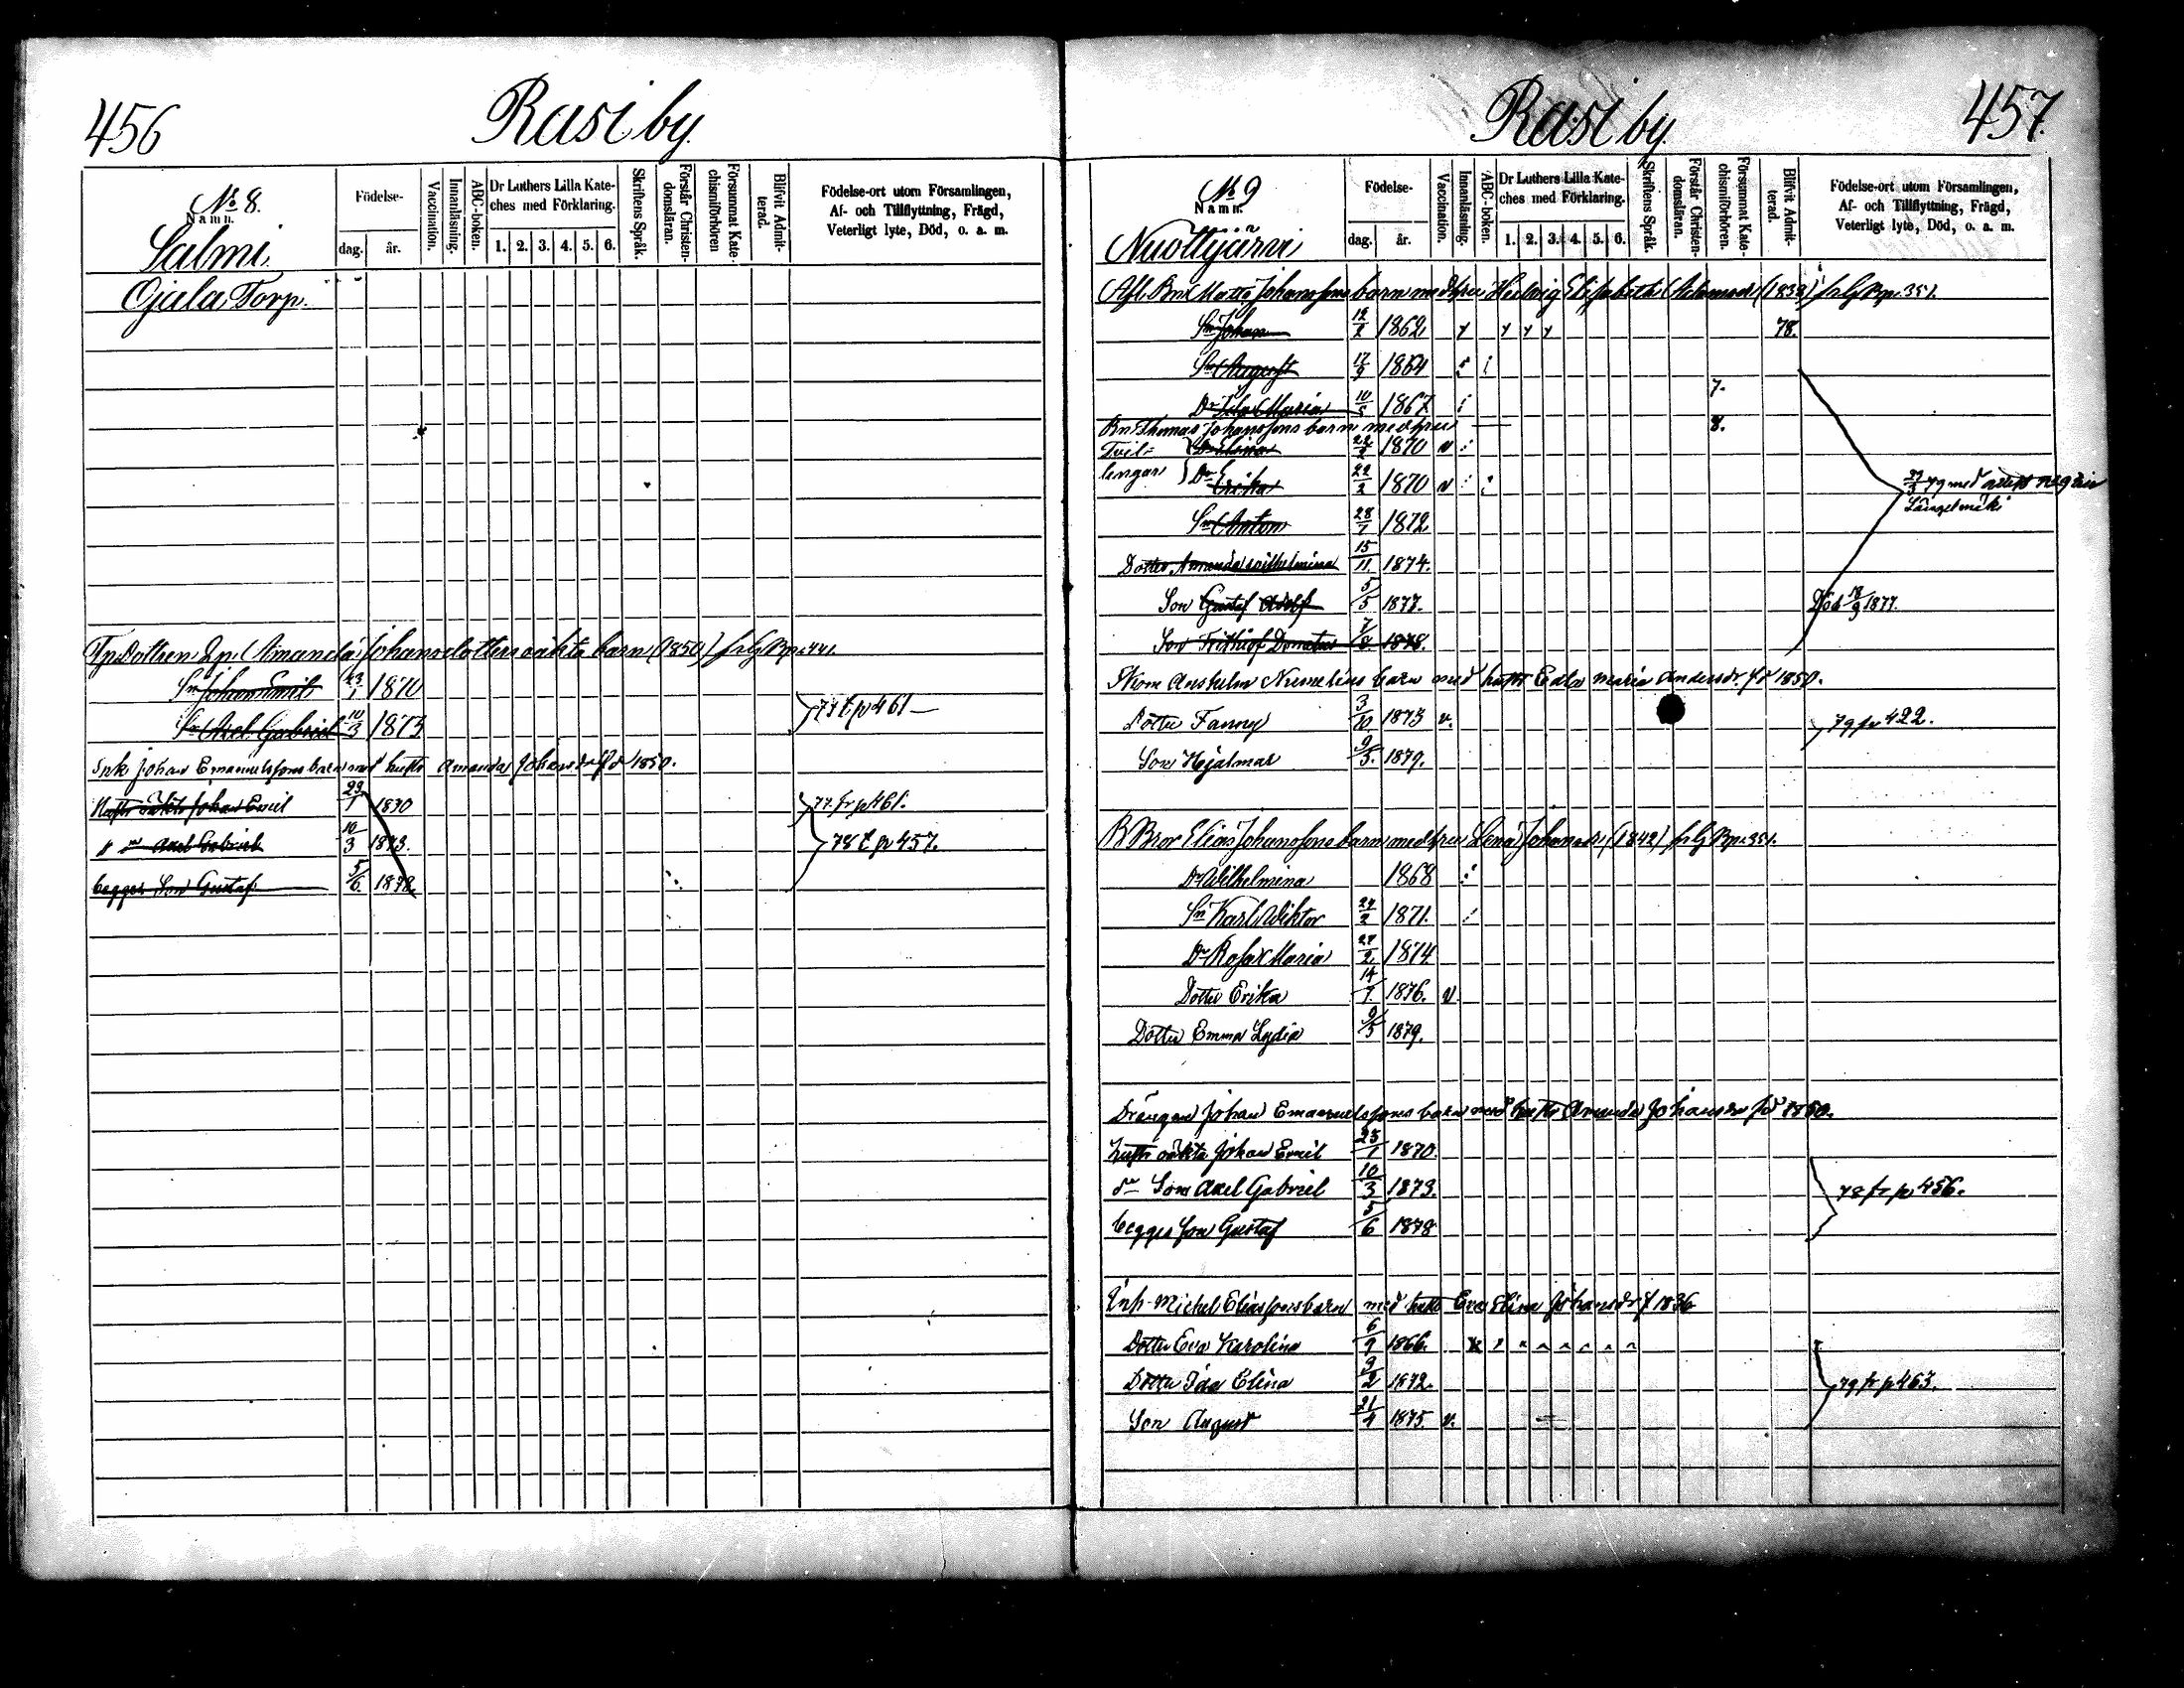 456
Rasi by.
No 8.
Namn.
Salmi.
Födelse-
dag.
år.
Vaccination.
Innanläsning.
ABC-boken.
Dr Luthers Lilla Kate-
ches med Förklaring.
1. 2. 3. 4. 5. 6.
Skriftens Språk.
Förstår Christen-
domsläran.
Försummat Kate-
chismiförhören
Blifvit Admit-
terad.
Födelse-ort utom Församlingen,
Af- och Tillflyttning, Frägd,
Veterligt lyte, Död, o. a. m.
Ojala Torp.
Tp Dottren Lp. Amanda Johansdotters oäkta barn (1850)
Sn Johan Emil 23/1 1870
Sn Axel Gabriel 10/3 1873
77 t p 461
Johan Emanuelssons barn med hustr Amanda Johansdr fd 1850.
Hustr oäkta Johan Emil 23/1 1870
77. fr p 461.
Axel Gabriel 10/3 1873.
78 t p 457.
begges Son Gustaf 5/6 1878.
457.
Rasi by.
No 9
Namn.
Nuottijärvi
Födelse-
dag.
år.
Vaccination.
Innanläsning.
ABC-boken.
Dr Luthers Lilla Kate-
ches med Förklaring.
1. 2. 3. 4. 5. 6.
Skriftens Språk.
Förstår Christen-
domsläran.
Försummat Kate-
chismiförhören.
Blifvit Admit-
terad.
Födelse-ort utom Församlingen,
Af- och Tillflyttning, Frägd,
Veterligt lyte, Död, o. a. m.
Afl. Bn Matts Johanssons barn med hu Hedvig Elisabeth (1838)
Sn Johan 12/2 1862 78.
Sn August 17/9 1864
7.
Dr Ida Maria 10/5 1867
Bn Thomas Johanssons barn med hu 8.
Tvil- Dr Elina 22/2 1870 v
lingar Dr Erika 22/2 1870 v
79 med
Längelmäki
Sn Anton 28/1 1872
Dotter Amanda Wilhelmina 15/11 1874.
Son Gustaf Adolf 5/5 1877.
Död 18/9 1877.
Son Frithiof Donatus 7/8 1878.
Skom Anshelm Numelins barn med hustr Edla Maria Andersdr fd 1850.
Dotter Fanny 3/10 1873 v.
79 fr 422.
Son Hjalmar 9/3. 1879.
B Bror Elias Johanssons barn med hu Lena Johansdr (1842)
Dr Wilhelmina 1868
Sn Karl Wiktor 24/2 1871.
Dr Rosa Maria 27/2 1874
Dotter Erika 14/9 1876. v
Dotter Emma Lydia 9/3 1879.
Drängen Johan Emanuelssons barn med hustr Amanda Johansdr fd 1850.
hustr oäkta Johan Emil 23/1 1870
dn Son Axel Gabriel 10/3 1873.
78 fr p 456.
begges son Gustaf 5/6 1878
Inh. Michel Eliassons barn med hustr Eva Elina Johansdr f 1836
Dotter Eva Karolina 6/9 1866.
Dotter Ida Elina 9/2 1872.
79 fr p 463.
Son August 21/4 1875. v.